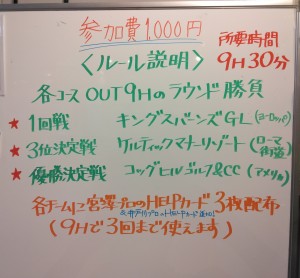 参加費1,000円
所要時間
9H30分
〈ルール説明〉
各コースOUT9Hのラウンド勝負
★1回戦 キングスバーンズGL(ヨーロッパ)
★3位決定戦 ケルティックマナーリゾート(ローマ街道)
★優勝決定戦 コッグヒルゴルフ&CC(アメリカ)
各チームに宮澤プロのHELPカード3枚配布
(9Hで3回まで使えます)